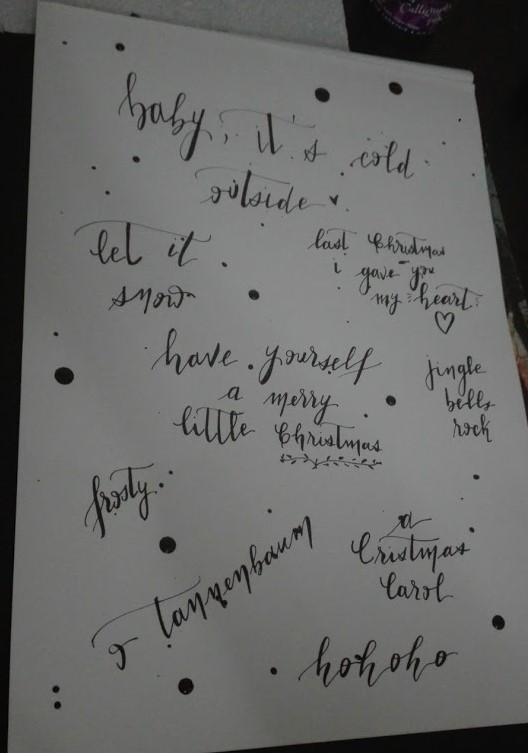 Calligra
baby, it's cold
outside
let it
snow
last Christmas
i gave you
my heart
have yourself
a merry
little Christmas
jingle
bells
rock
frosty
o tannenbaum
a
Cristmas
Carol
hohoho